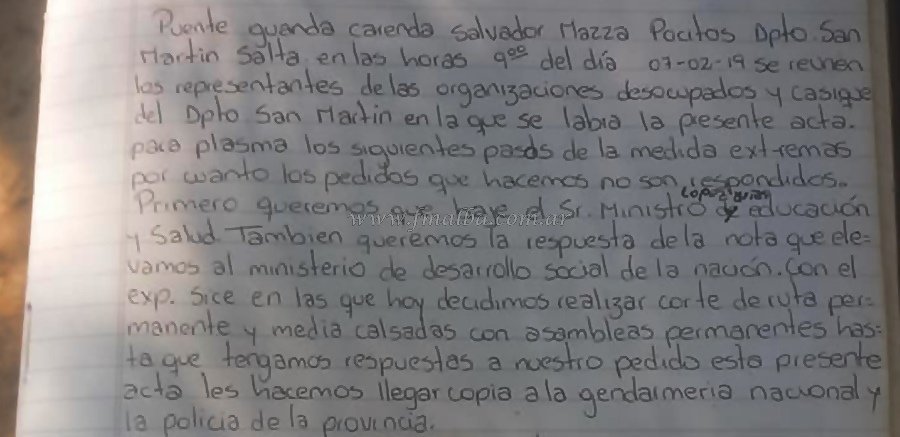 Puente guanda carenda Salvador Mazza Pocitos Dpto. San
Martin Salta en las horas 9°° del día 07-02-19 se reunen
los representantes de las organizaciones desocupados y casique
del Dpto San Martin en la que se labia la presente acta.
para plasma los siguientes pasos de la medida extremas
por cuanto los pedidos que hacemos no son respondidos.
Primero queremos que baye el Sr. Ministro y educación
www.fmalba.com.ar
y Salud. Tambien queremos la respuesta de la nota que ele=
vamos al ministerio de desarrollo social de la nación. Con el
exp. Sice en las que hoy decidimos realizar corte de ruta per=
manente y media calsadas con asambleas permanentes has=
ta que tengamos respuestas a nuestro pedido esta presente
acta les hacemos llegar copia a la gendarmeria nacional y
la policia de la provincia.